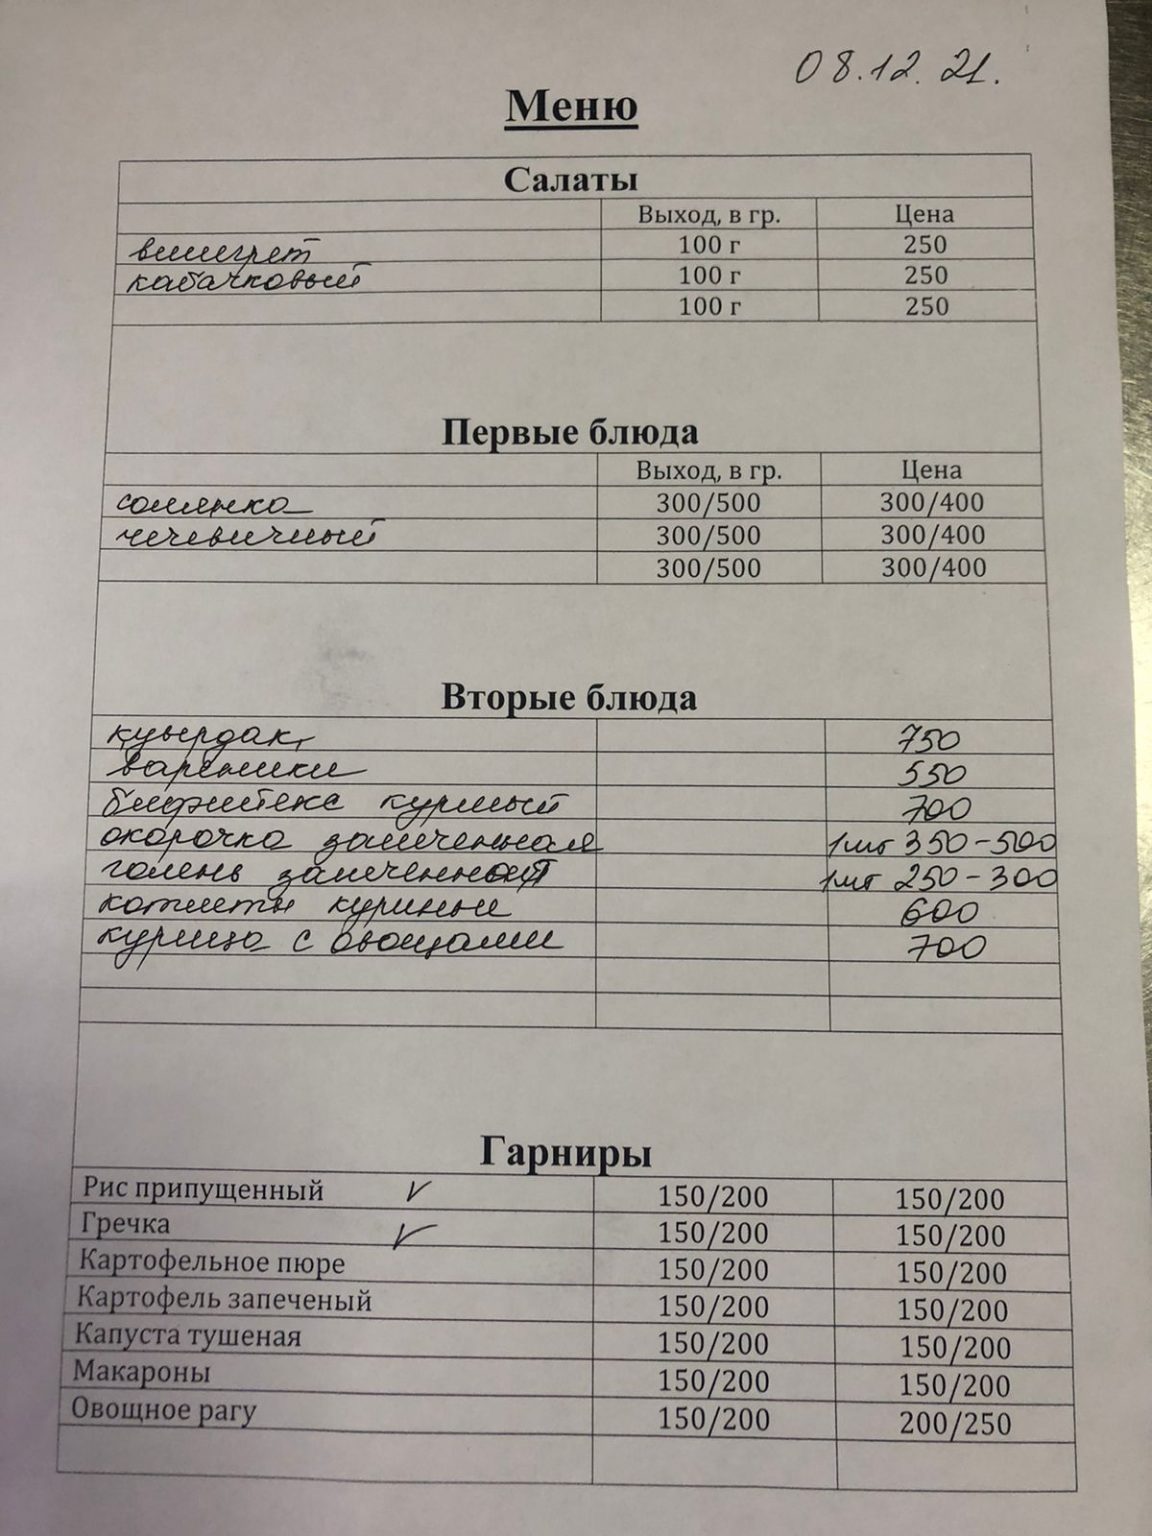 08.12.21.
Меню
Салаты
Выход, в гр. Цена
винегрет 100 г 250
кабачковый 100 г 250
100 г 250
Первые блюда
Выход, в гр. Цена
солянка 300/500 300/400
чечевичный 300/500 300/400
300/500 300/400
Вторые блюда
қуырдақ 750
вареники 550
бифштекс куриный 700
окорочка запеченная 1шт 350-500
голень запеченная 1шт 250-300
котлеты куриные 600
курица с овощами 700
Гарниры
Рис припущенный ✓ 150/200 150/200
Гречка ✓ 150/200 150/200
Картофельное пюре 150/200 150/200
Картофель запеченый 150/200 150/200
Капуста тушеная 150/200 150/200
Макароны 150/200 150/200
Овощное рагу 150/200 200/250